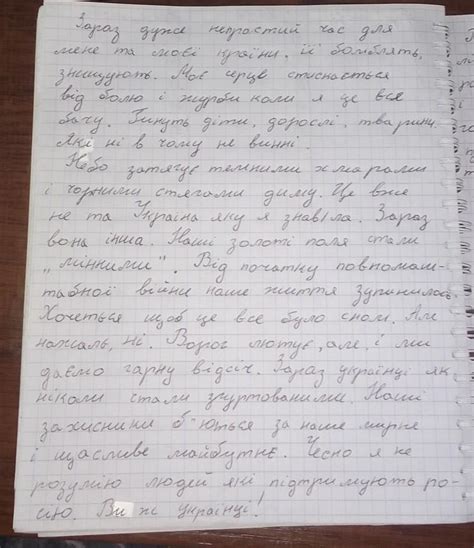 Зараз дуже непростий час для
мене та моєї країни, її бомблять,
знищують. Моє серце стискається
від болю і журби коли я це все
бачу. Гинуть діти, дорослі, тварини
які ні в чому не винні.
Небо затягує темними хмарами
і чорними стягами диму. Це вже
не та Україна яку я знав/ла. Зараз
вона інша. Наші золоті поля стали
„мінними". Від початку повномаш-
табної війни наше життя зупинилось.
Хочеться щоб це все було сном. Але
нажаль, ні. Ворог лютує, але, і ми
даємо гарну відсіч. Зараз українці як
ніколи стали згуртованими. Наші
захисники б'ються за наше мирне
і щасливе майбутнє. Чесно я не
розумію людей які підтримують ро-
сію. Ви ж українці!